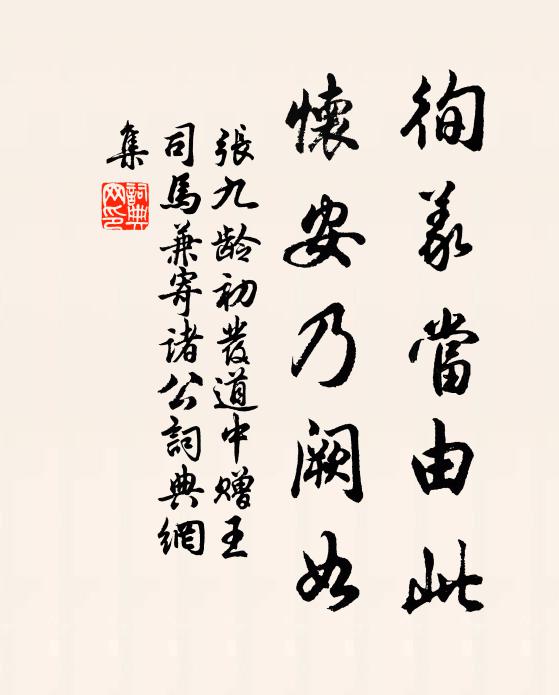 徇義當由此
懷安乃闕如
張九齡初發道中贈王
司馬兼寄諸公詞典網
集
詞典網印